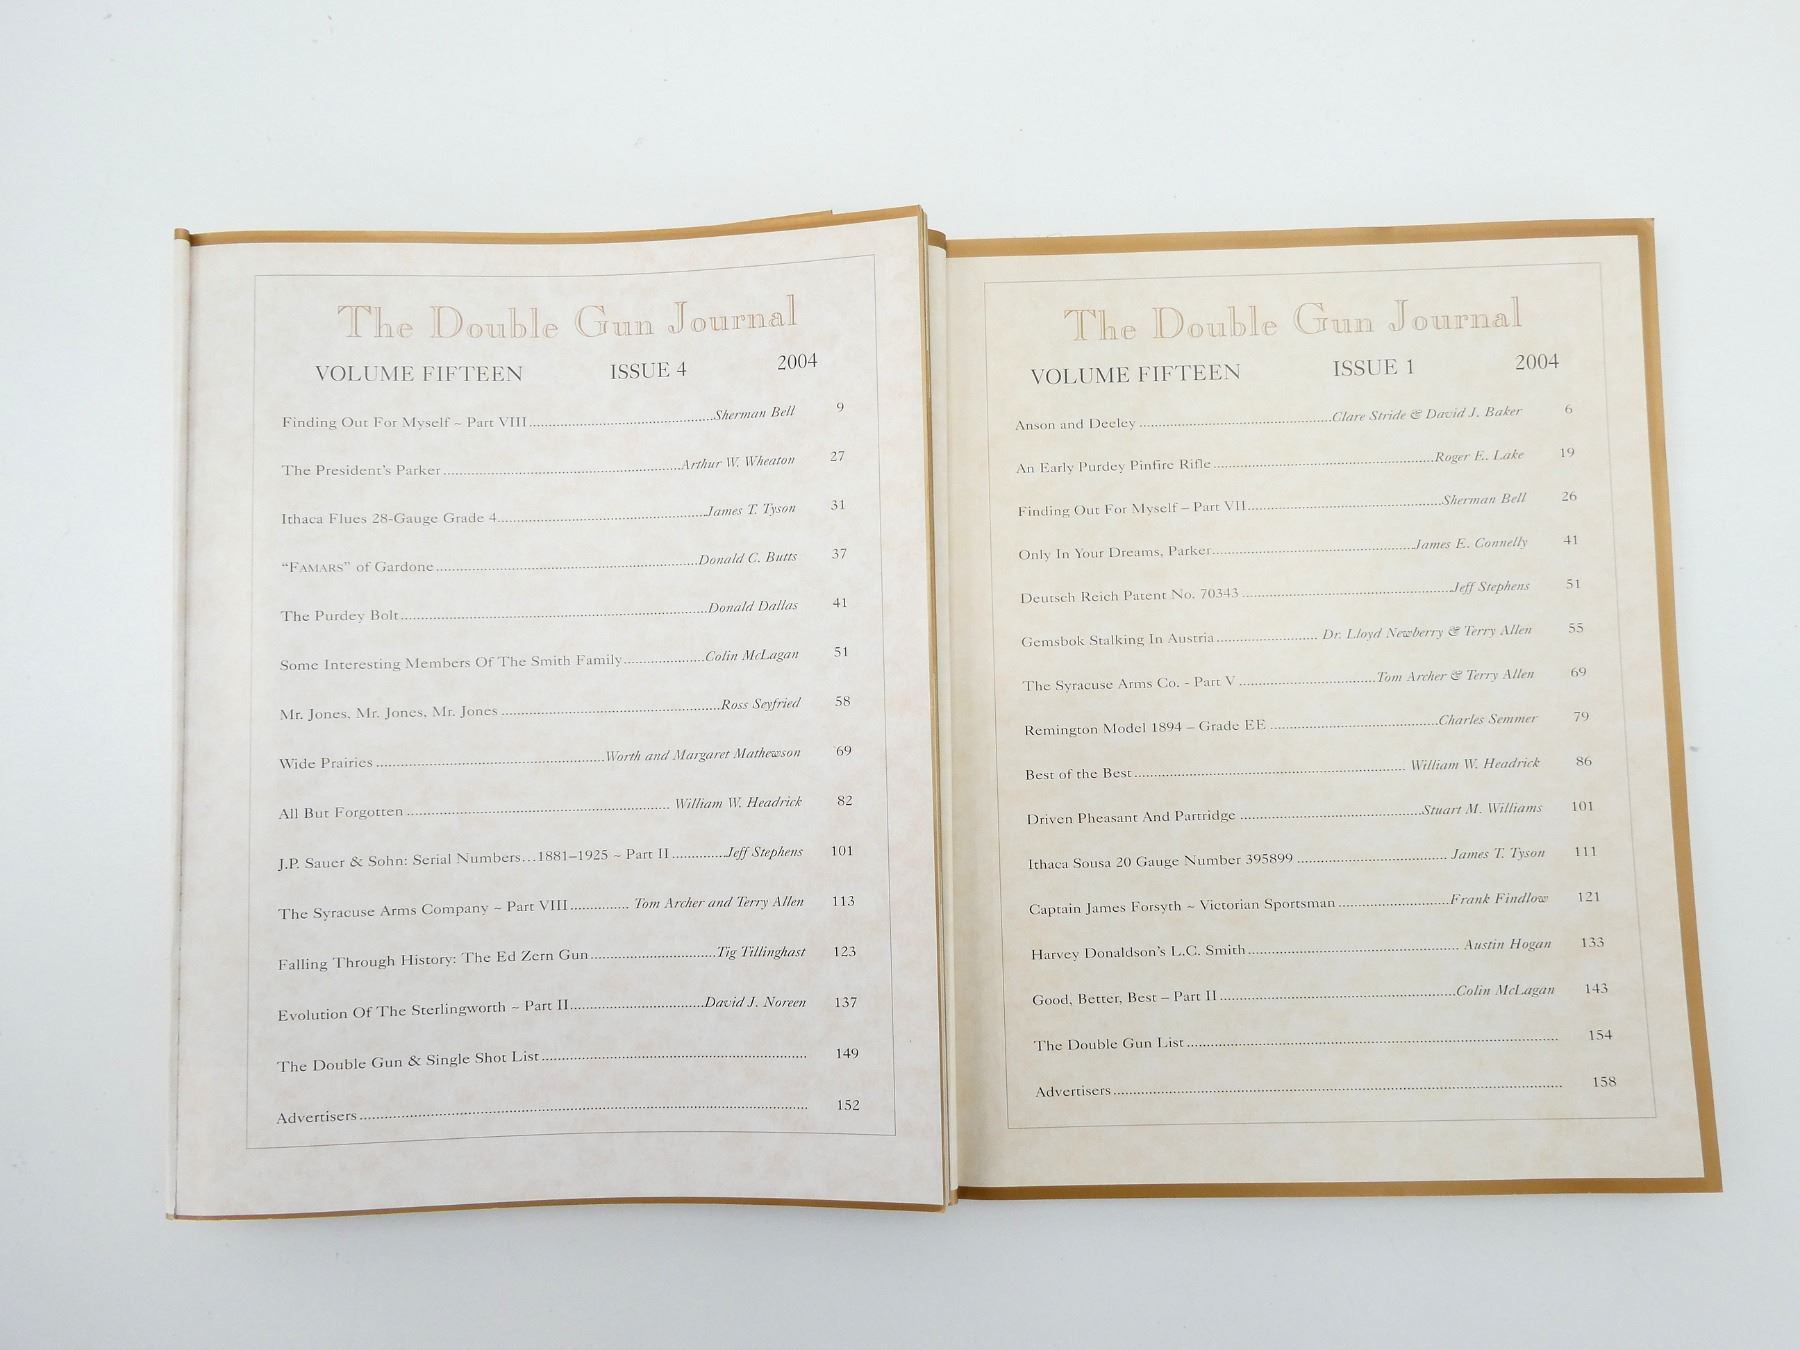 The Double Gun Journal
VOLUME FIFTEEN ISSUE 4 2004
Finding Out For Myself ~ Part VIII Sherman Bell 9
The President's Parker Arthur W. Wheaton 27
Ithaca Flues 28-Gauge Grade 4 James T. Tyson 31
"FAMARS" of Gardone Donald C. Butts 37
The Purdey Bolt Donald Dallas 41
Some Interesting Members Of The Smith Family Colin McLagan 51
Mr. Jones, Mr. Jones, Mr. Jones Ross Seyfried 58
Wide Prairies Worth and Margaret Mathewson 69
All But Forgotten William W. Headrick 82
J.P. Sauer & Sohn: Serial Numbers...1881–1925 ~ Part II Jeff Stephens 101
The Syracuse Arms Company ~ Part VIII Tom Archer and Terry Allen 113
Falling Through History: The Ed Zern Gun Tig Tillinghast 123
Evolution Of The Sterlingworth ~ Part II David J. Noreen 137
The Double Gun & Single Shot List 149
Advertisers 152
The Double Gun Journal
VOLUME FIFTEEN ISSUE 1 2004
Anson and Deeley Clare Stride & David J. Baker 6
An Early Purdey Pinfire Rifle Roger E. Lake 19
Finding Out For Myself – Part VII Sherman Bell 26
Only In Your Dreams, Parker James E. Connelly 41
Deutsch Reich Patent No. 70343 Jeff Stephens 51
Gemsbok Stalking In Austria Dr. Lloyd Newberry & Terry Allen 55
The Syracuse Arms Co. - Part V Tom Archer & Terry Allen 69
Remington Model 1894 – Grade EE Charles Semmer 79
Best of the Best William W. Headrick 86
Driven Pheasant And Partridge Stuart M. Williams 101
Ithaca Sousa 20 Gauge Number 395899 James T. Tyson 111
Captain James Forsyth ~ Victorian Sportsman Frank Findlow 121
Harvey Donaldson's L.C. Smith Austin Hogan 133
Good, Better, Best – Part II Colin McLagan 143
The Double Gun List 154
Advertisers 158